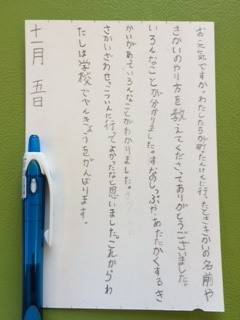 お元気ですか。わたしたちが町たんけんに行ったとききかいの名前や
きかいのやり方を教えてくださってありがとうございました。
いろんなことが分かりました。すなのしっぷや、あたたかくするき
かいがあていろんなことがわかりました。
さかいざわせっこついんに行ってよかったなと思いました。これからわ
たしは学校でべんきょうをがんばります。
十一月 五日